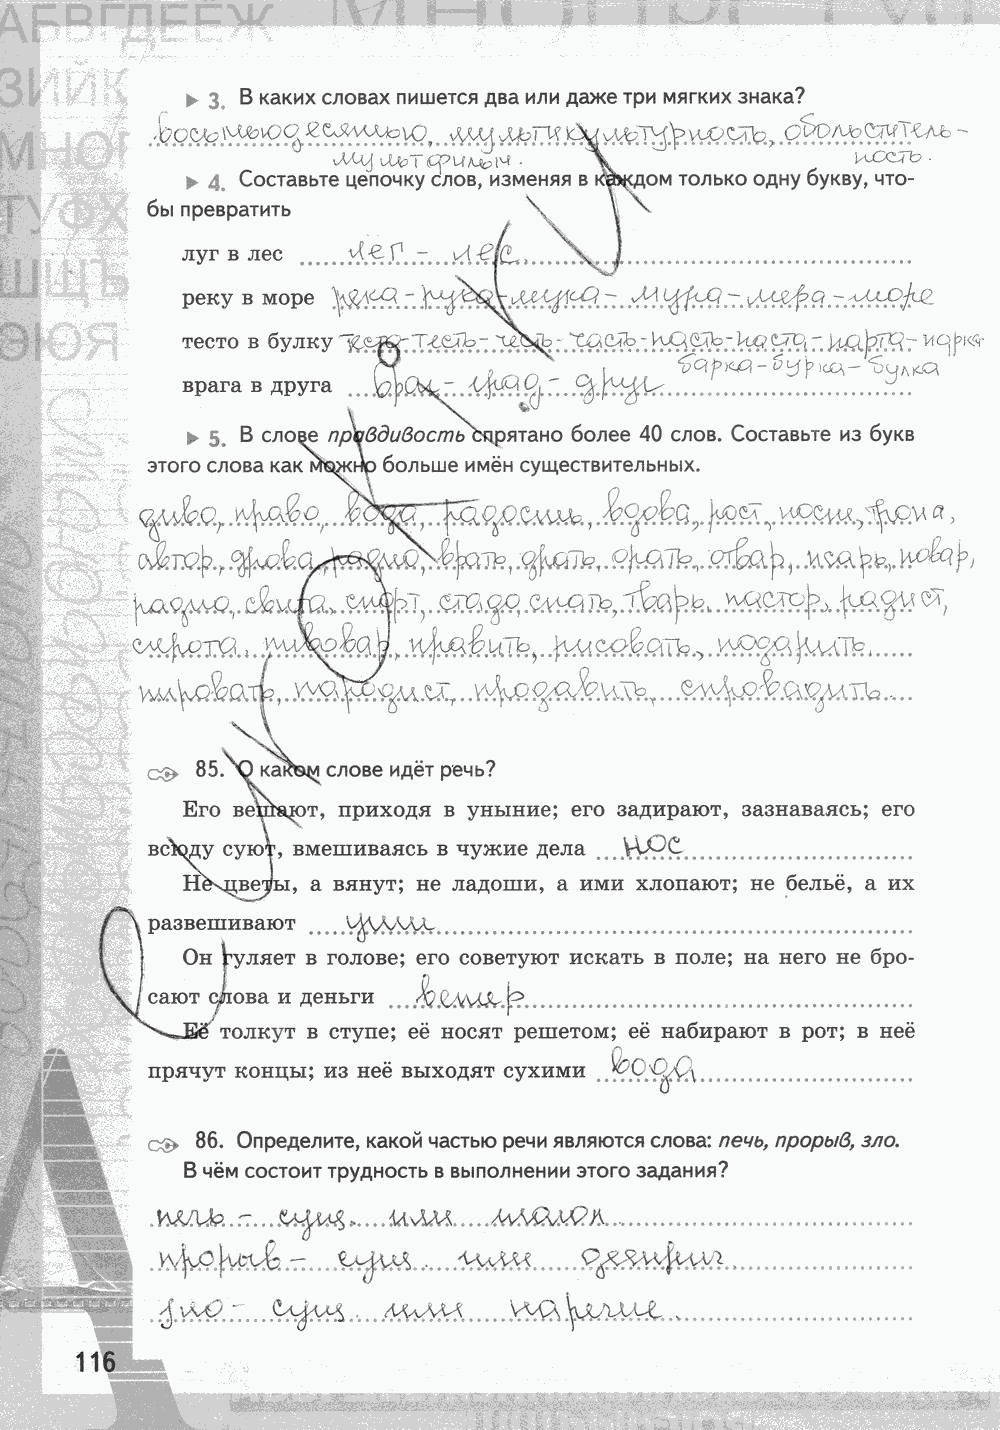 ▶ 3. В каких словах пишется два или даже три мягких знака?
восьмьюдесятью, мультикультурность, обольститель-
мультфильм. ность.
▶ 4. Составьте цепочку слов, изменяя в каждом только одну букву, что-
бы превратить
луг в лес лег - лес.
реку в море река-рука-мука-мура-мера-море
тесто в булку тесто-тесть-честь-часть-пасть-паста-парта-парка
барка-бурка-булка
врага в друга враг-град-друг
▶ 5. В слове правдивость спрятано более 40 слов. Составьте из букв
этого слова как можно больше имён существительных.
диво, право, вода, радость, вдова, рост, пост, тропа,
автор, дрова, радио, врать, драть, орать, отвар, псарь, повар,
радио, свита, спорт, стадо, спать, тварь, пастор, радист,
сирота, пивовар, править, рисовать, подарить
пировать, пародист, продавить, спровадить.
85. О каком слове идёт речь?
Его вешают, приходя в уныние; его задирают, зазнаваясь; его
всюду суют, вмешиваясь в чужие дела нос
Не цветы, а вянут; не ладоши, а ими хлопают; не бельё, а их
развешивают уши
Он гуляет в голове; его советуют искать в поле; на него не бро-
сают слова и деньги ветер
Её толкут в ступе; её носят решетом; её набирают в рот; в неё
прячут концы; из неё выходят сухими вода
86. Определите, какой частью речи являются слова: печь, прорыв, зло.
В чём состоит трудность в выполнении этого задания?
печь - сущ. или глагол.
прорыв - сущ. или дееприч.
зло - сущ. или наречие.
116